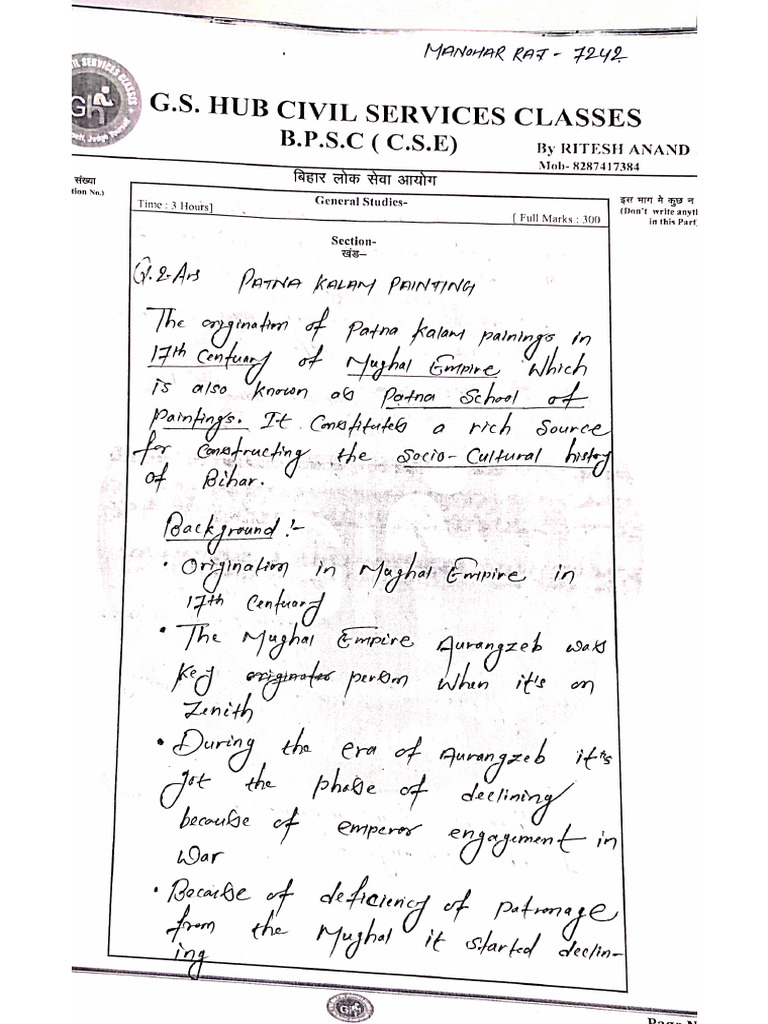 MANOHAR RAJ - 7242
G.S. HUB CIVIL SERVICES CLASSES
B.P.S.C ( C.S.E)
By RITESH ANAND
Mob- 8287417384
बिहार लोक सेवा आयोग
संख्या
tion No.)
इस भाग मे कुछ न
(Don't write anyt
in this Part
Time : 3 Hours]
General Studies-
[ Full Marks : 300
Section-
खंड–
Q.2-Ans PATNA KALAM PAINTING
The origination of Patna Kalam painings in
17th Centuary of Mughal Empire which
is also known as Patna School of
Paintings. It Constitutes a rich Source
for Constructing the Socio-Cultural history
of Bihar.
Background :-
• Origination in Mughal Empire in
17th Centuary
• The Mughal Empire Aurangzeb was
key originator person when it's on
Zenith
• During the era of Aurangzeb it's
got the phase of declining
because of emperor engagement in
war
• Because of deficiency of patronage
from the Mughal it started declin-
ing
Gh